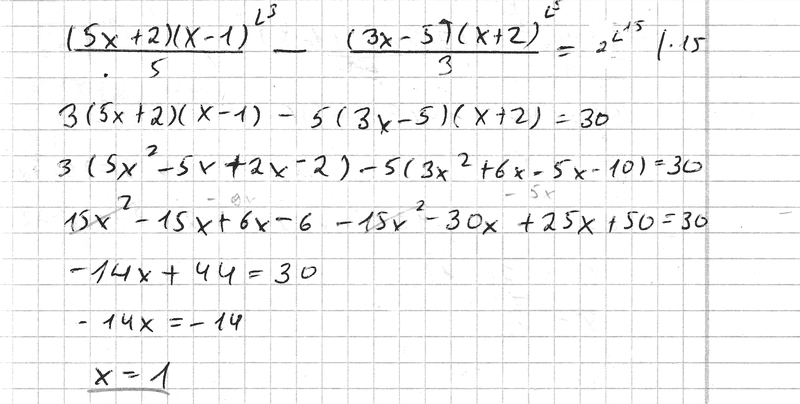 (5x+2)(x-1)/5 ∟3 − (3x-5)(x+2)/3 ∟5 = 2 ∟15 /·15
3(5x+2)(x-1) - 5(3x-5)(x+2) = 30
3(5x²-5x+2x-2) - 5(3x²+6x-5x-10) = 30
- 9x - 5x
15x² - 15x + 6x - 6 - 15x² - 30x + 25x + 50 = 30
-14x + 44 = 30
-14x = -14
x = 1